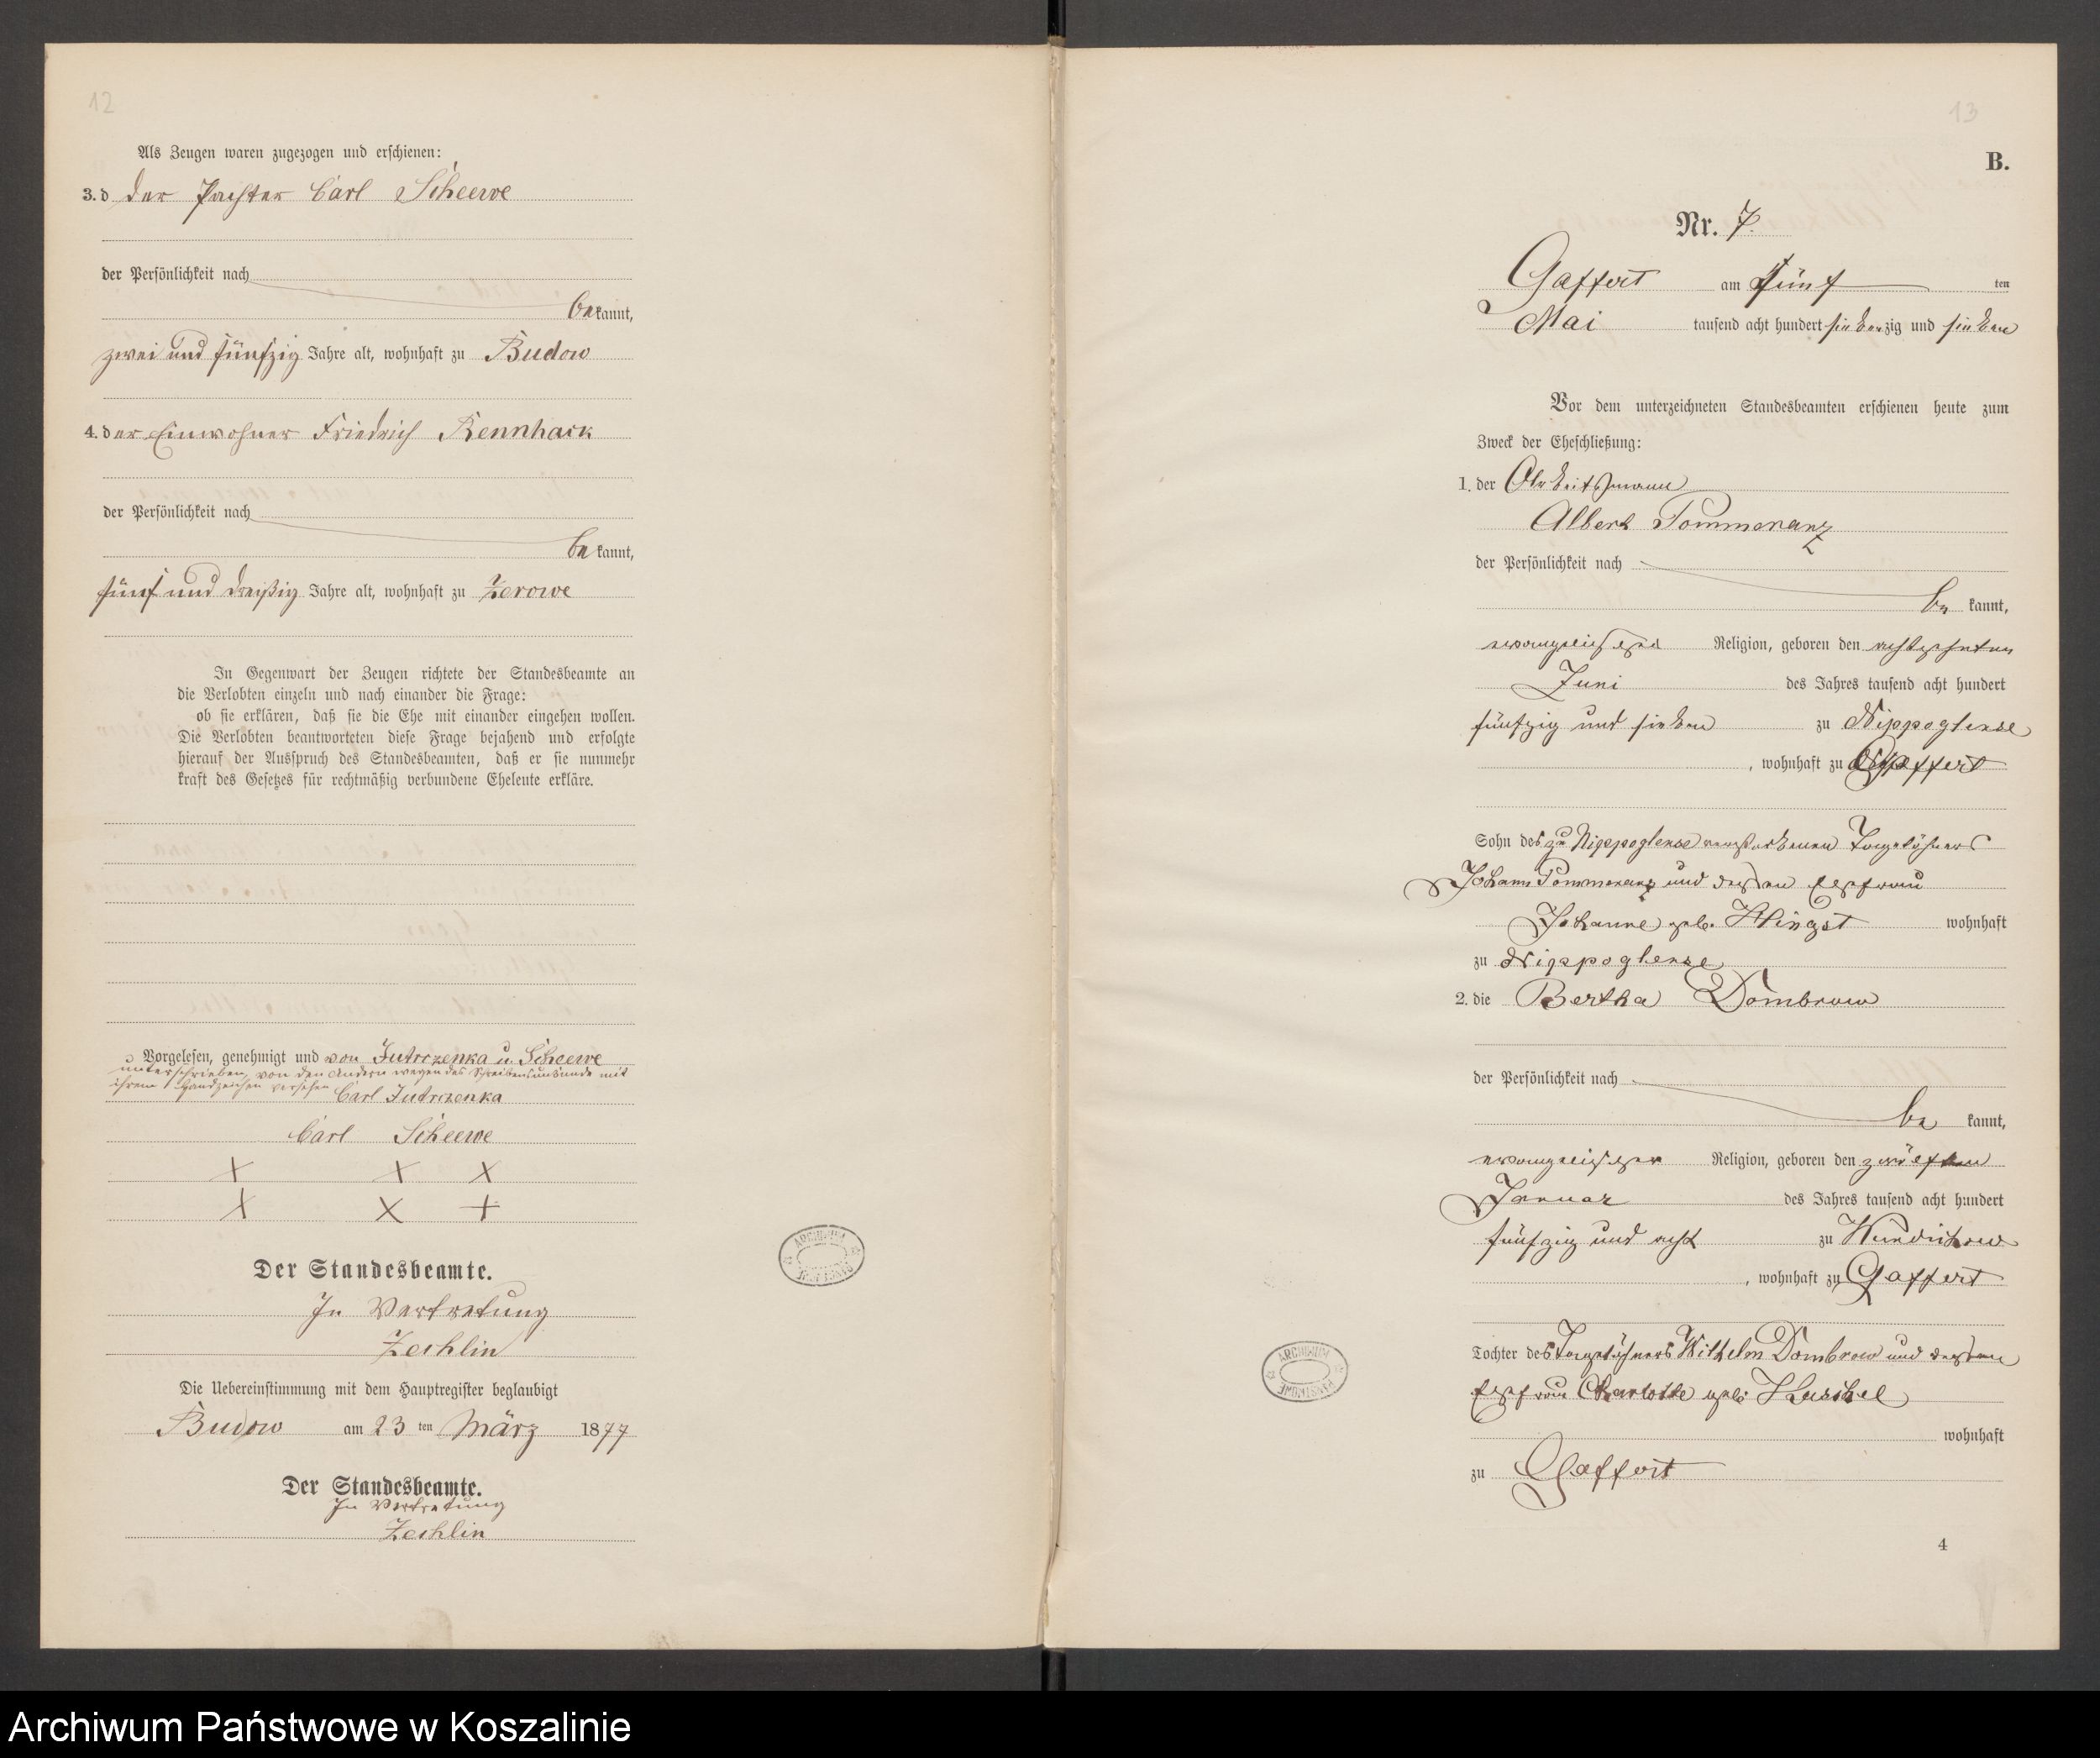 12
Als Zeugen waren zugezogen und erschienen:
3. der Pachter Carl Scheewe
der Persönlichkeit nach
bekannt,
zwei und fünfzig Jahre alt, wohnhaft zu Budow
4. der Einwohner Friedrich Rennhack
der Persönlichkeit nach
bekannt,
fünf und dreißig Jahre alt, wohnhaft zu Zerowe
In Gegenwart der Zeugen richtete der Standesbeamte an
die Verlobten einzeln und nach einander die Frage:
ob sie erklären, daß sie die Ehe mit einander eingehen wollen.
Die Verlobten beantworteten diese Frage bejahend und erfolgte
hierauf der Ausspruch des Standesbeamten, daß er sie nunmehr
kraft des Gesetzes für rechtmäßig verbundene Eheleute erkläre.
Vorgelesen, genehmigt und von Jutrczenka u. Scheewe
unterschrieben, von den Andern wegen des Schreibensunkunde mit
ihrem Handzeichen versehen
Carl Jutrczenka
Carl Scheewe
+ + +
+ + +
Der Standesbeamte.
In Vertretung
Zechlin
Die Uebereinstimmung mit dem Hauptregister beglaubigt
Budow am 23 ten März 1877
Der Standesbeamte.
In Vertretung
Zechlin
ARCHIWUM PAŃSTWOWE
13
B.
Nr. 7.
Gaffert am fünf ten
Mai tausend acht hundert siebenzig und sieben
Vor dem unterzeichneten Standesbeamten erschienen heute zum
Zweck der Eheschließung:
1. der Arbeitsmann
Albert Pommeranz
der Persönlichkeit nach
be kannt,
evangelischer Religion, geboren den achtzehnten
Juni des Jahres tausend acht hundert
fünfzig und sieben zu Nippoglense
, wohnhaft zu Gaffert
Sohn des zu Nippoglense verstorbenen Tagelöhners
Johann Pommeranz und dessen Ehefrau
Johanne geb. Hingst wohnhaft
zu Nippoglense
2. die Bertha Dombrow
der Persönlichkeit nach
be kannt,
evangelischer Religion, geboren den zwölften
Januar des Jahres tausend acht hundert
fünfzig und acht zu Wundichow
, wohnhaft zu Gaffert
Tochter des Tagelöhners Wilhelm Dombrow und dessen
Ehefrau Charlotte geb. Kuschel
wohnhaft
zu Gaffert
ARCHIWUM PAŃSTWOWE
4
Archiwum Państwowe w Koszalinie